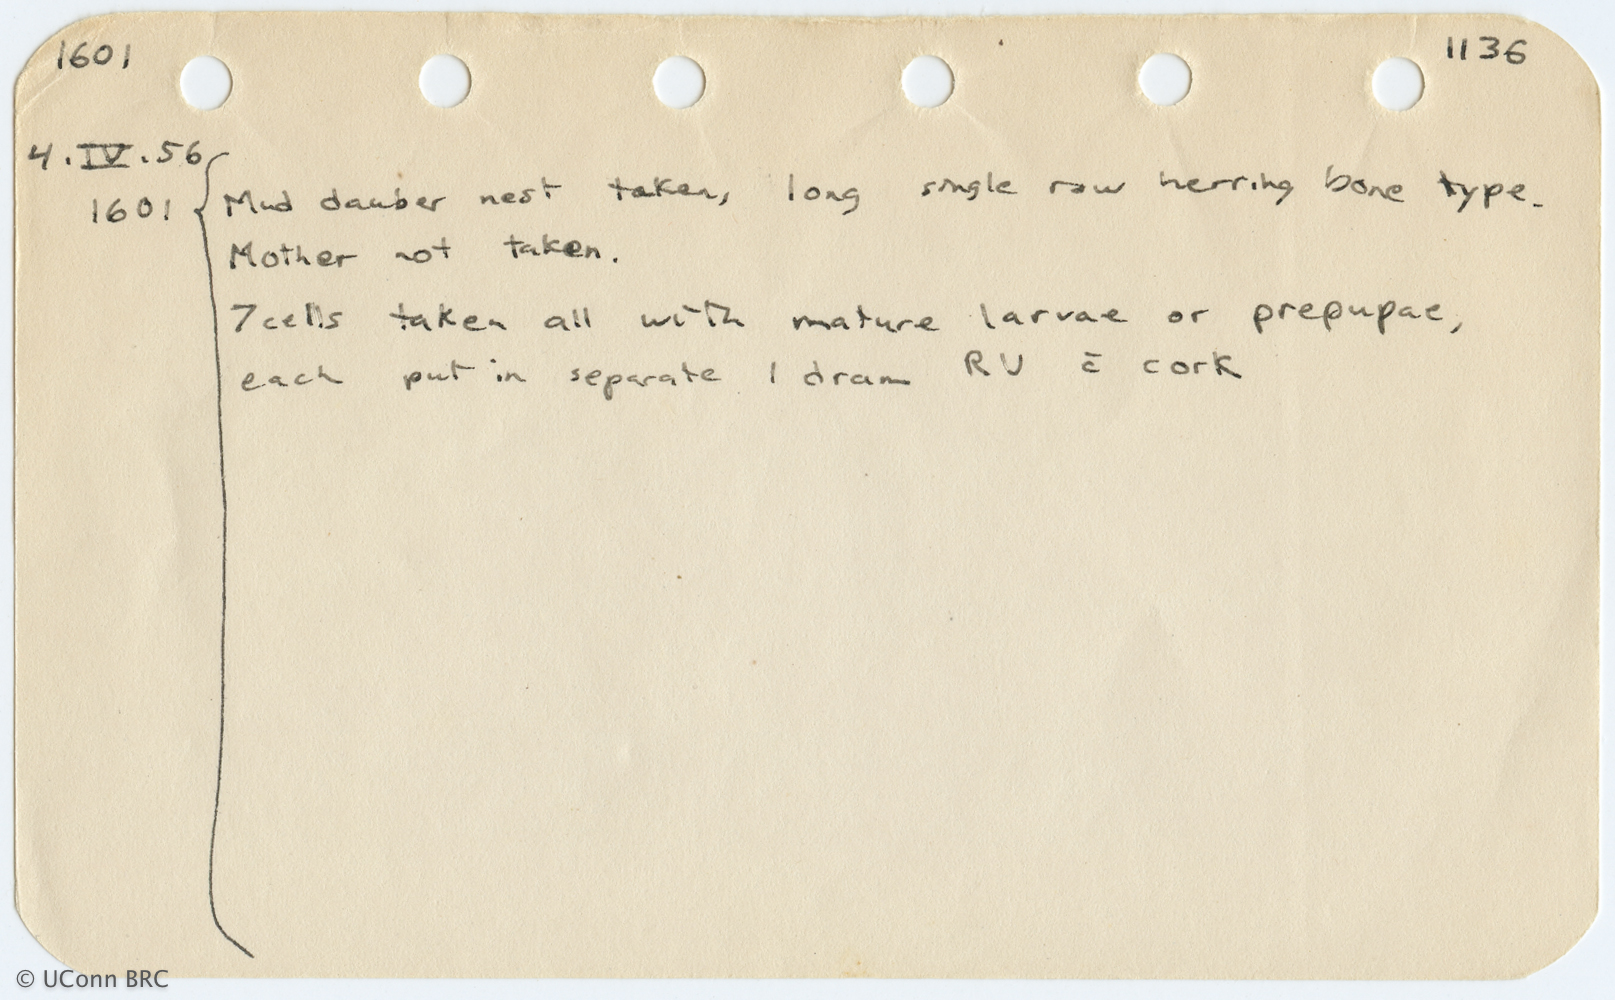 1601 1136
4.IV.56
1601 Mud dauber nest taken, long single row herring bone type.
Mother not taken.
7 cells taken all with mature larvae or prepupae,
each put in separate 1 dram RV c̄ cork
© UConn BRC